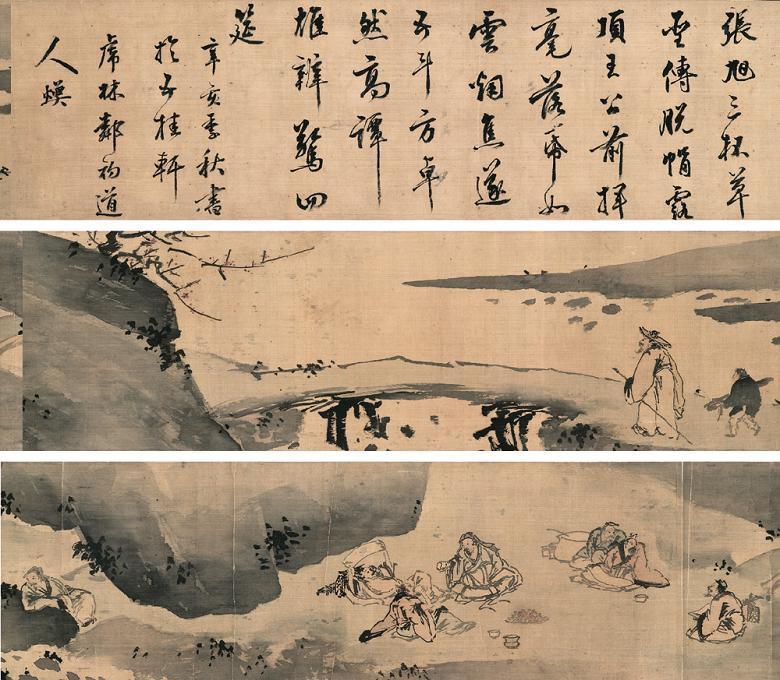 張旭三杯草
聖傳脫帽露
頂王公前揮
毫落帋如
雲烟焦遂
五斗方卓
然高譚
雄辯驚四
筵
辛亥季秋書
於五桂軒
虎林道
人